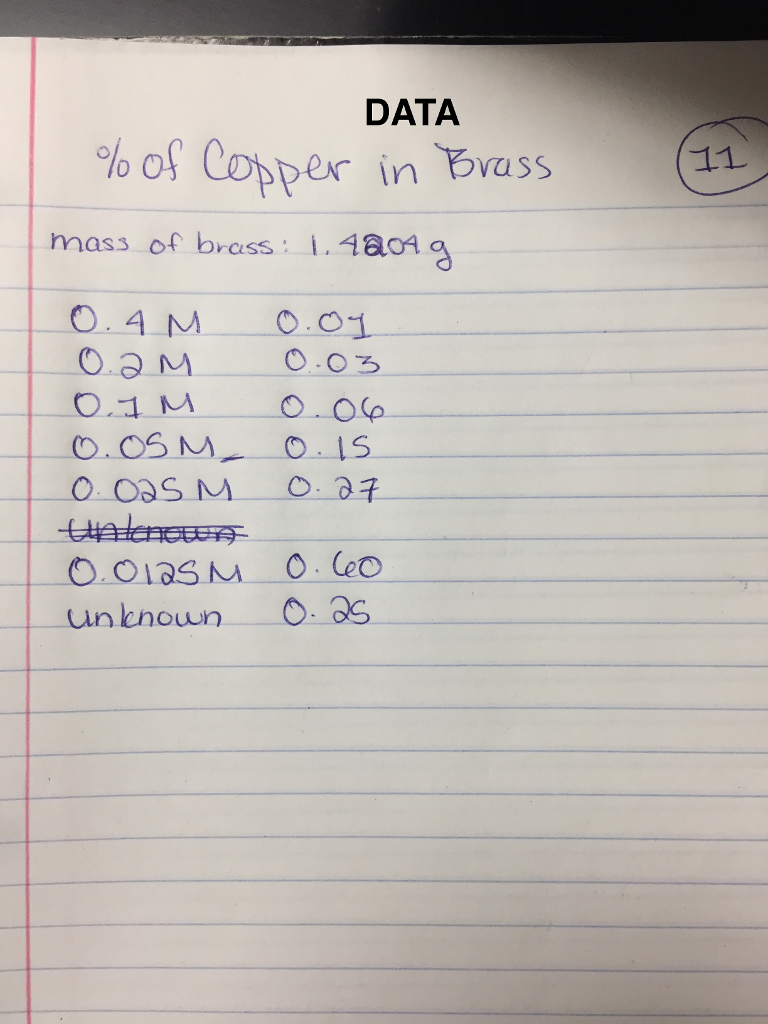 DATA
% of Copper in Brass
11
mass of brass: 1.4204 g
0.4 M 0.01
0.2 M 0.03
0.1 M 0.06
0.05 M 0.15
0.025 M 0.27
unknown
0.0125 M 0.60
unknown 0.25